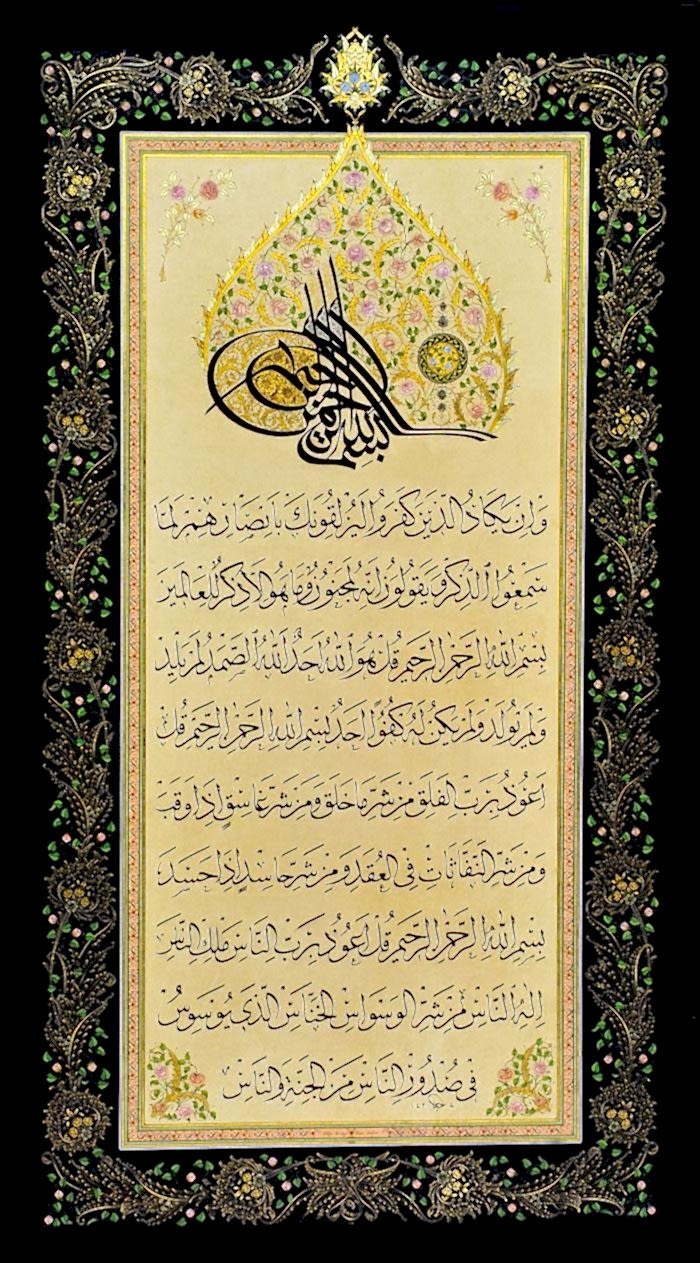 بسم الله الرحمن الرحيم
وَاِنْ يَكَادُ الَّذِينَ كَفَرُوا لَيُزْلِقُونَكَ بِاَبْصَارِهِمْ لَمَّا
سَمِعُوا الذِّكْرَ وَيَقُولُونَ اِنَّهُ لَمَجْنُونٌ وَمَا هُوَ اِلَّا ذِكْرٌ لِلْعَالَمِينَ
بِسْمِ اللّٰهِ الرَّحْمٰنِ الرَّحِيمِ قُلْ هُوَ اللّٰهُ اَحَدٌ اَللّٰهُ الصَّمَدُ لَمْ يَلِدْ
وَلَمْ يُولَدْ وَلَمْ يَكُنْ لَهُ كُفُوًا اَحَدٌ بِسْمِ اللّٰهِ الرَّحْمٰنِ الرَّحِيمِ قُلْ
اَعُوذُ بِرَبِّ الْفَلَقِ مِنْ شَرِّ مَا خَلَقَ وَمِنْ شَرِّ غَاسِقٍ اِذَا وَقَبَ
وَمِنْ شَرِّ النَّفَّاثَاتِ فِي الْعُقَدِ وَمِنْ شَرِّ حَاسِدٍ اِذَا حَسَدَ
بِسْمِ اللّٰهِ الرَّحْمٰنِ الرَّحِيمِ قُلْ اَعُوذُ بِرَبِّ النَّاسِ مَلِكِ النَّاسِ
اِلٰهِ النَّاسِ مِنْ شَرِّ الْوَسْوَاسِ الْخَنَّاسِ الَّذِي يُوَسْوِسُ
فِي صُدُورِ النَّاسِ مِنَ الْجِنَّةِ وَالنَّاسِ